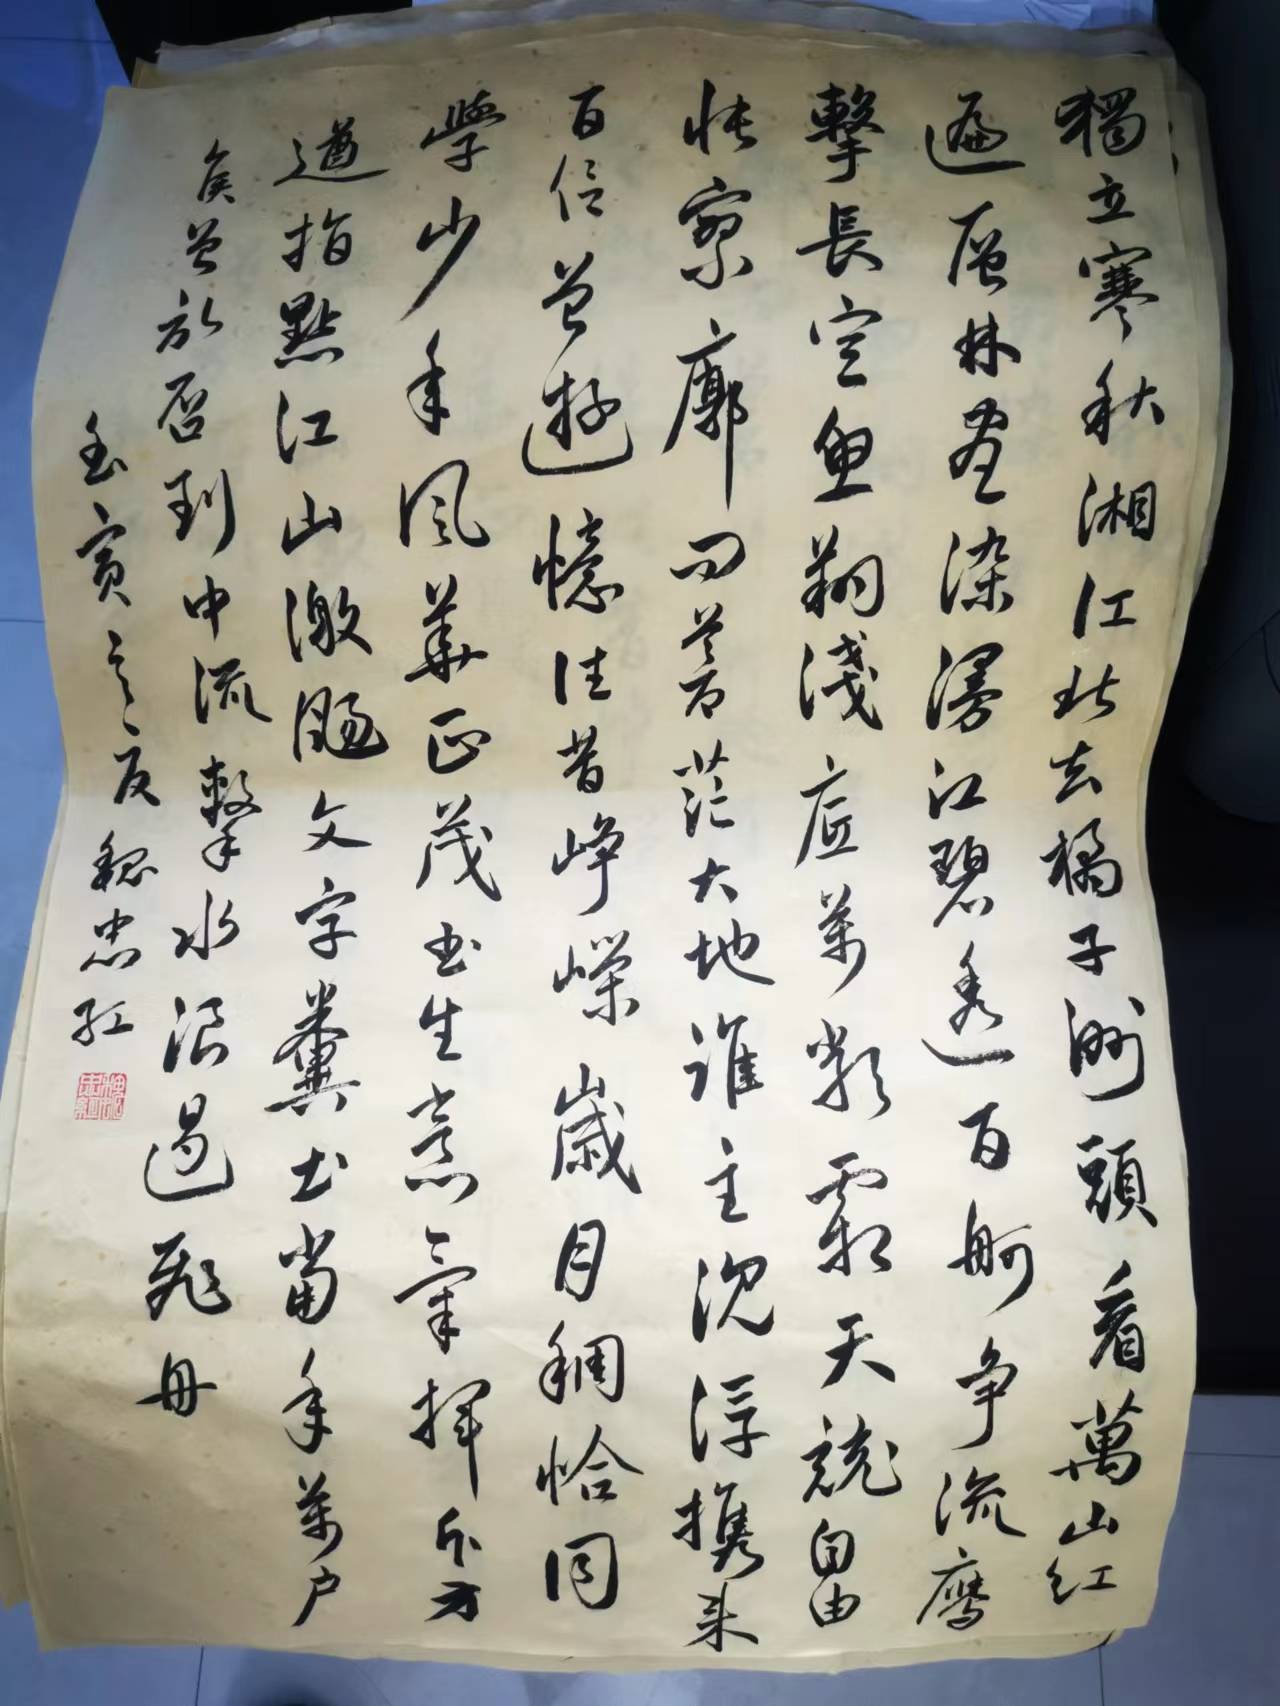 獨立寒秋湘江北去橘子洲頭看萬山红
遍層林盡染漫江碧透百舸争流鹰
擊長空魚翔淺底萬類霜天競自由
怅寥廓问蒼茫大地谁主沉浮携来
百侣曾遊憶往昔峥嵘歲月稠恰同
學少年风華正茂书生意氣揮斥方
遒指點江山激颺文字糞土當年萬户
侯曾记否到中流擊水浪遏飛舟
寅之夏魏忠红